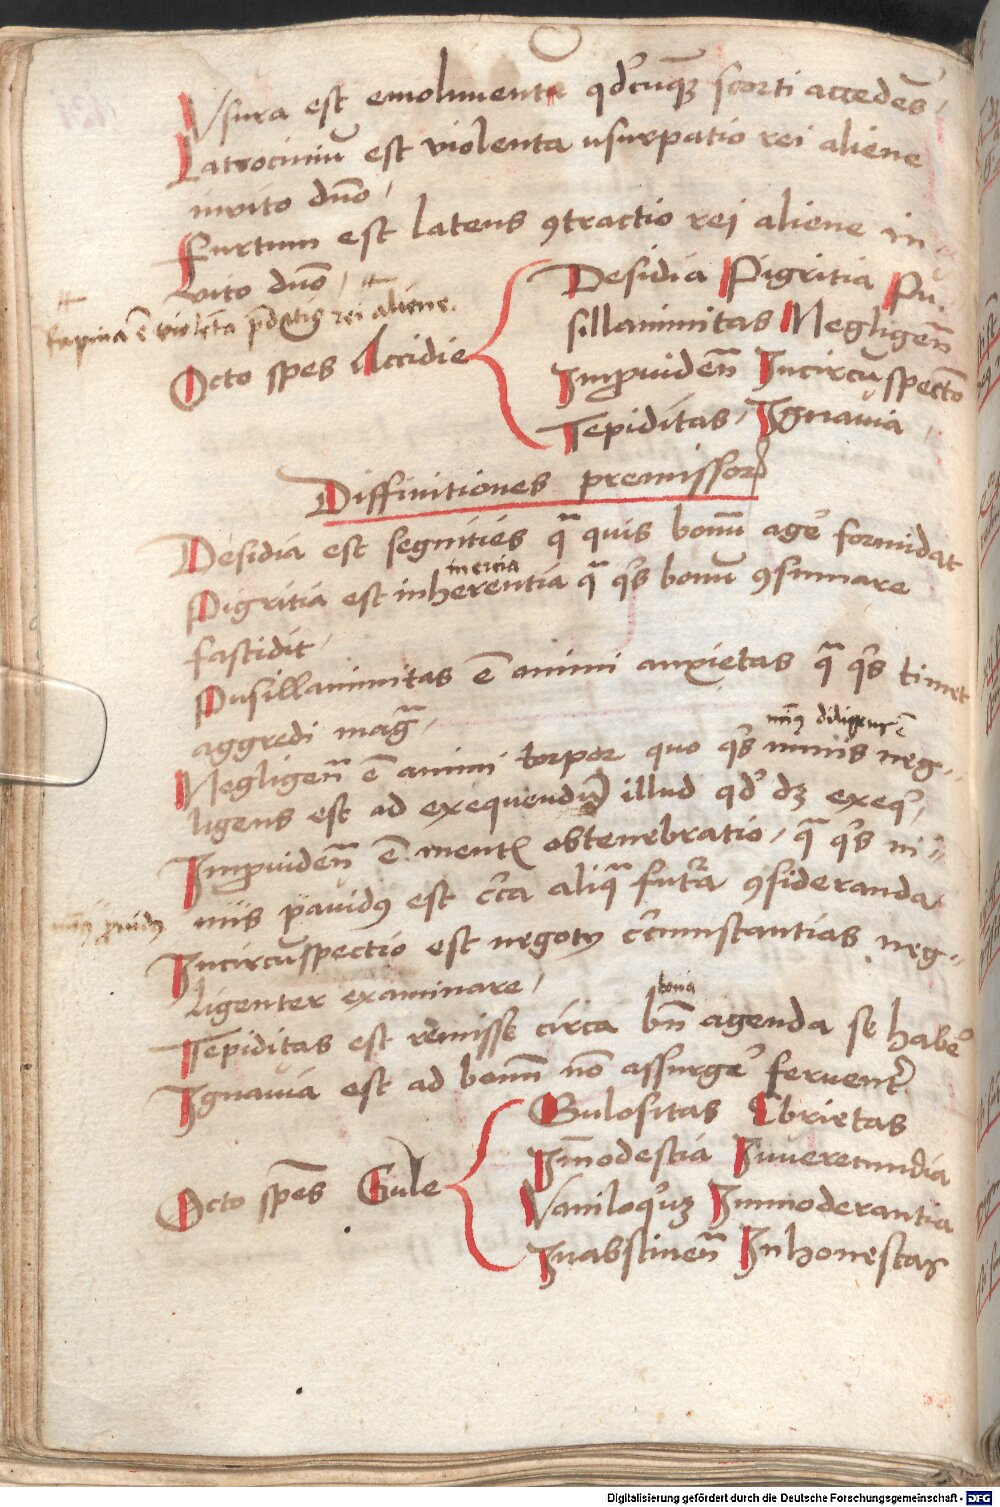 Vsura est emolimentum qdcuq̃ scorti accedēs
Latrociniū est violenta usurpatio rei aliene
inuito dn̄o
Furtum est latens ꝯtractio rei aliene in
vito dn̄o
Rapina ē violēta p̄datio rei aliene.
Octo sp̄es Accidie
Desidia Pigritia Pu
sillanimitas Negligen̄
Imꝓuiden̄ Incircūspectō
Tepiditas Ignauia
Diffinitiones premissor
Desidia est segnities qa quis bonū agẽ formidat
inercia
Pigritia est inherentia qa qs bonū ꝯsumare
fastidit
Pusillanimitas ē animi anxietas qa qs timet
aggredi mag̃
min9 diligens ē
Negligen̄ ē animi torpor quo qs nimis neg-
ligens est ad exequendū illud qd dꝫ exeq
Imꝓuiden̄ ē ment obtenebratio qa qs ni-
miis pauid9 est cca aliq futra ꝯsideranda
min9 ꝓuid9
Incircūspectio est negoty ccumstantias neg-
ligenter examinare
bona
Tepiditas est remisse circa bn̄ agenda se habe
Ignauia est ad bonū nō assurge feruent
Octo sp̄es Gule
Gulositas Ebrietas
Im̄odestia Inuerecundia
Vaniloquꝫ Inmoderantia
Inabstinen̄ Inhonestas
Digitalisierung gefördert durch die Deutsche Forschungsgemeinschaft - DFG